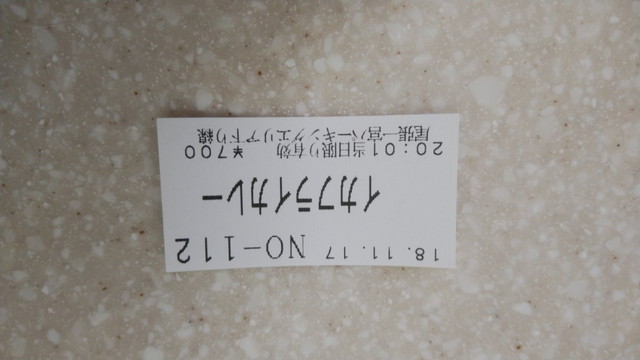 18.11.17 NO-112
イカフライカレー
20:01当日限り有効 ¥700
尾張一宮パーキングエリア下り線